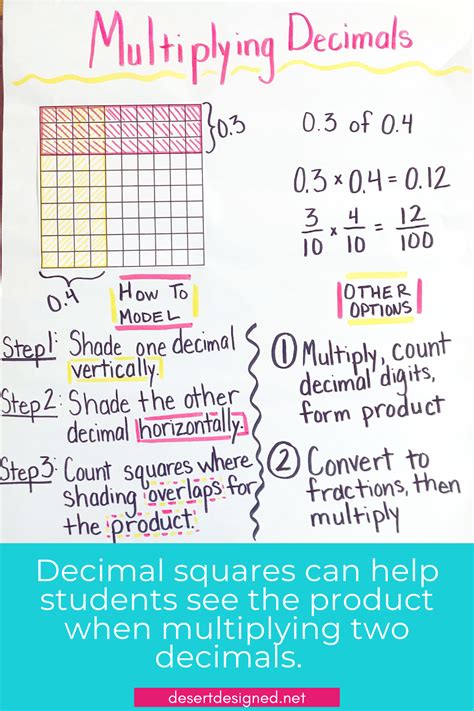 Multiplying Decimals
0.3
0.3 of 0.4
0.3 × 0.4 = 0.12
3/10 × 4/10 = 12/100
0.4
How To
Model
Step 1: Shade one decimal
vertically.
Step 2: Shade the other
decimal horizontally.
Step 3: Count squares where
shading overlaps for
the product.
Other
Options
① Multiply, count
decimal digits,
form product
② Convert to
fractions, then
multiply
Decimal squares can help
students see the product
when multiplying two
decimals.
desertdesigned.net